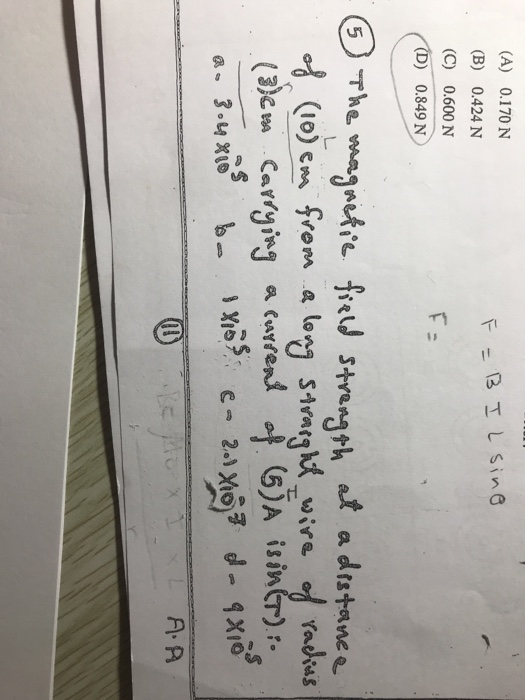 (A) 0.170 N
(B) 0.424 N
(C) 0.600 N
(D) 0.849 N
F = B I L sin θ
F =
(5) The magnetic field strength at a distance
L
of (10) cm from a long straight wire of radius
r I
(3) cm carrying a current of (5) A is in (T):-
a- 3.4 x10⁻⁵ b- 1 x10⁻⁵ c- 2.1 x10⁻⁷ d- 9 x10⁻⁵
(11)
A.A